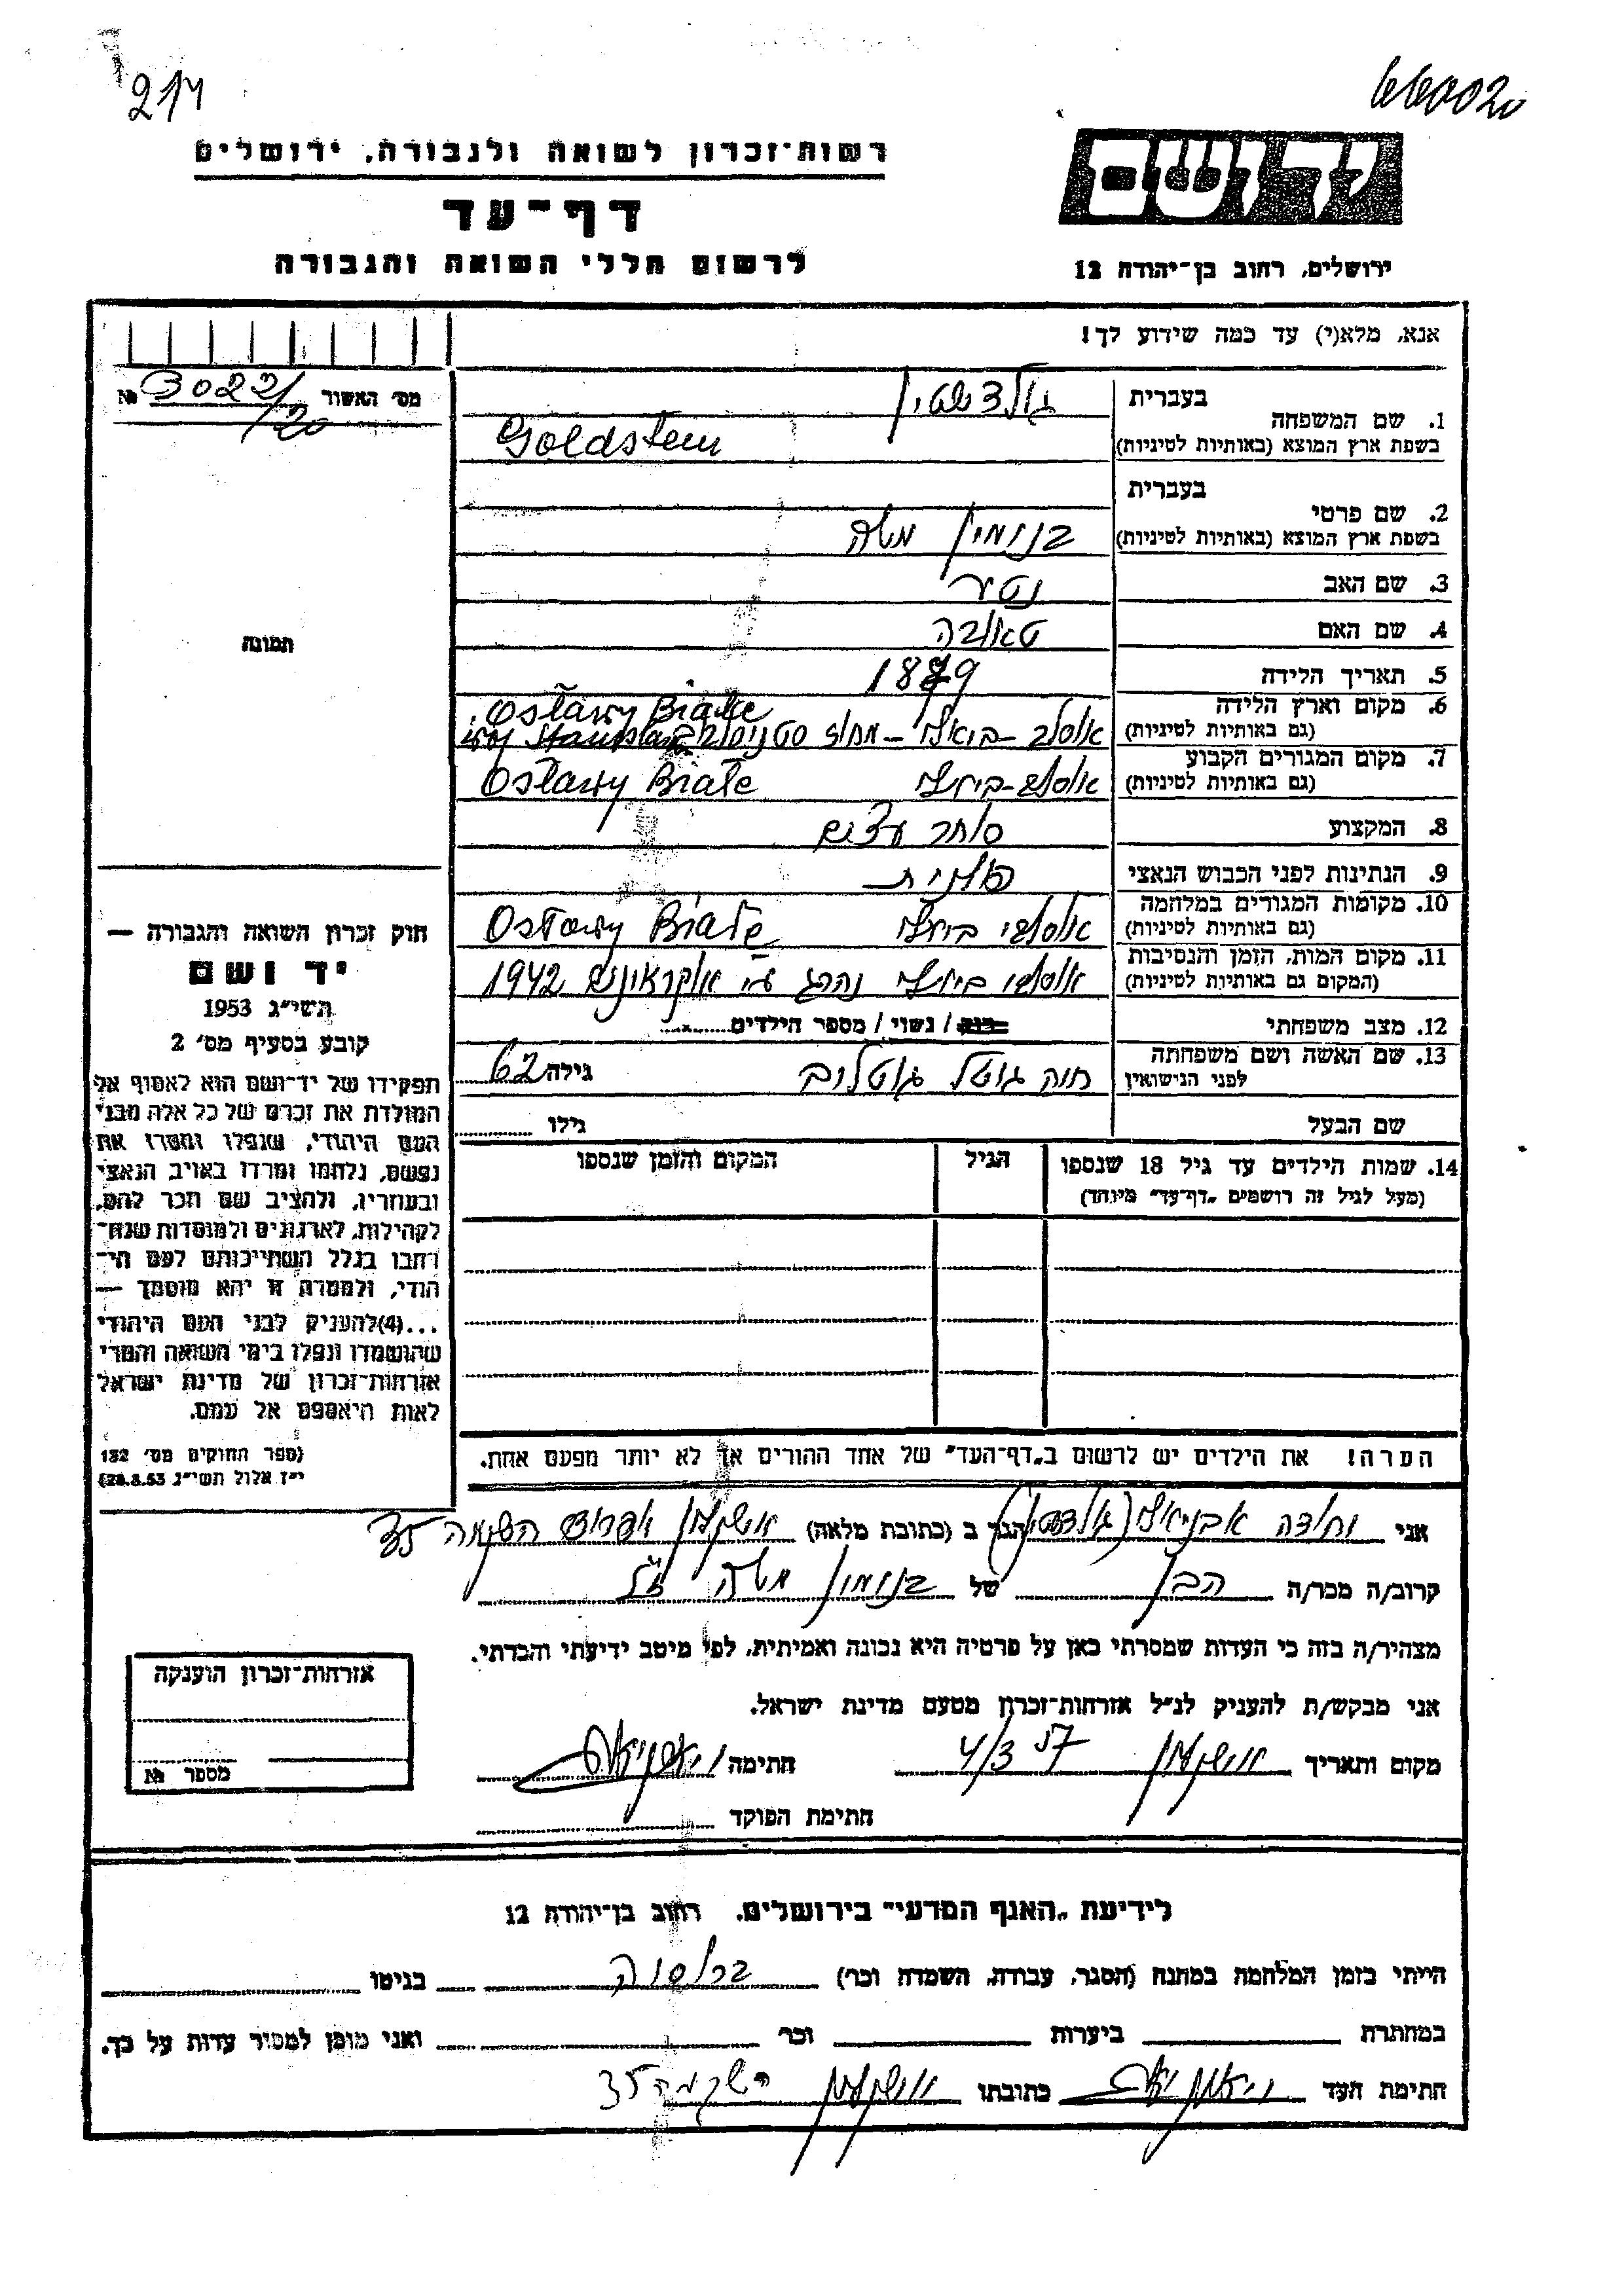 217
660020
רשות־זכרון לשואה ולגבורה, ירושלים
דף־עד
לרשום חללי השואה והגבורה
יד ושם
ירושלים, רחוב בן־יהודה 12
אנא, מלא(י) עד כמה שידוע לך!
מס' האשור 3022/20 №
1. שם המשפחה
בעברית גולדשטין
בשפת ארץ המוצא (באותיות לטיניות) Goldstein
2. שם פרטי
בעברית
בשפת ארץ המוצא (באותיות לטיניות) בנימין משה
3. שם האב
4. שם האם טאובה
5. תאריך הלידה 1879
6. מקום וארץ הלידה Osławy Białe
(גם באותיות לטיניות) מחוז סטניסלב woj Stanisław
7. מקום המגורים הקבוע
(גם באותיות לטיניות) Osławy Białe
8. המקצוע סוחר עצים
9. הנתינות לפני הכבוש הנאצי פולנית
10. מקומות המגורים במלחמה
(גם באותיות לטיניות) Osławy Białe
11. מקום המות, הזמן והנסיבות
(המקום גם באותיות לטיניות) נהרג ע"י אוקראינים 1942
12. מצב משפחתי רווק / נשוי / מספר הילדים
13. שם האשה ושם משפחתה
לפני הנישואין חיה גיטל גוטליב גילה 62
שם הבעל גילו
14. שמות הילדים עד גיל 18 שנספו הגיל המקום והזמן שנספו
(מעל לגיל זה רושמים „דף־עד" מיוחד)
הערה! את הילדים יש לרשום ב„דף־העד" של אחד ההורים אך לא יותר מפעם אחת.
תמונה
חוק זכרון השואה והגבורה —
יד ושם
תשי"ג 1953
קובע בסעיף מס' 2
תפקידו של יד־ושם הוא לאסוף אל
המולדת את זכרם של כל אלה מבני
העם היהודי, שנפלו ומסרו את
נפשם, נלחמו ומרדו באויב הנאצי
ובעוזריו, ולהציב שם וזכר להם,
לקהילות, לארגונים ולמוסדות שנח־
רבו בגלל השתייכותם לעם הי־
הודי, ולמטרה זו יהא מוסמך —
...(4)להעניק לבני העם היהודי
שהושמדו ונפלו בימי השואה והמרי
אזרחות־זכרון של מדינת ישראל
לאות היאספם אל עמם.
(ספר החוקים מס' 132
י"ז אלול תשי"ג 28.8.53)
אני יהודה (גולדשטין) הגר ב (כתובת מלאה) אשקלון השקמה 35
קרוב/ה מכר/ה הבן של בנימין משה ז"ל
מצהיר/ה בזה כי העדות שמסרתי כאן על פרטיה היא נכונה ואמיתית, לפי מיטב ידיעתי והכרתי.
אני מבקש/ת להעניק לנ"ל אזרחות־זכרון מטעם מדינת ישראל.
מקום ותאריך אשקלון 4/3 57 חתימה
חתימת הפוקד
אזרחות־זכרון הוענקה
מספר №
לידיעת „האגף המדעי" בירושלים, רחוב בן־יהודה 12
הייתי בזמן המלחמה במחנה (הסגר, עבודה, השמדה וכו') ברוסיה בגיטו
במחתרת ביערות וכו' ואני מוכן למסור עדות על כך.
חתימת העד כתובתו אשקלון השקמה 35